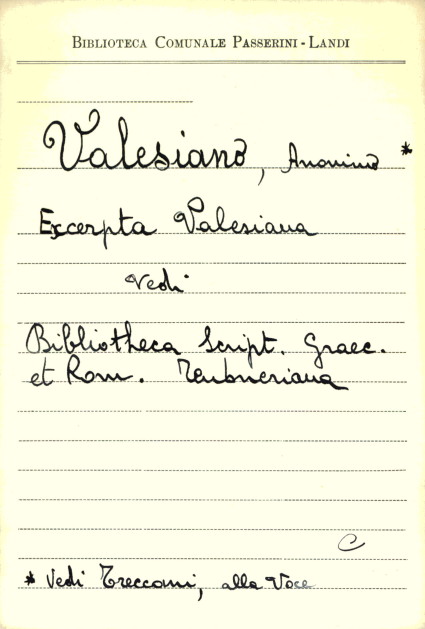 BIBLIOTECA COMUNALE PASSERINI - LANDI
Valesiano, Anonimo *
Excerpta Valesiana
Vedi
Bibliotheca Script. Graec.
et Rom. Teubneriana
C
* Vedi Treccani, alla Voce